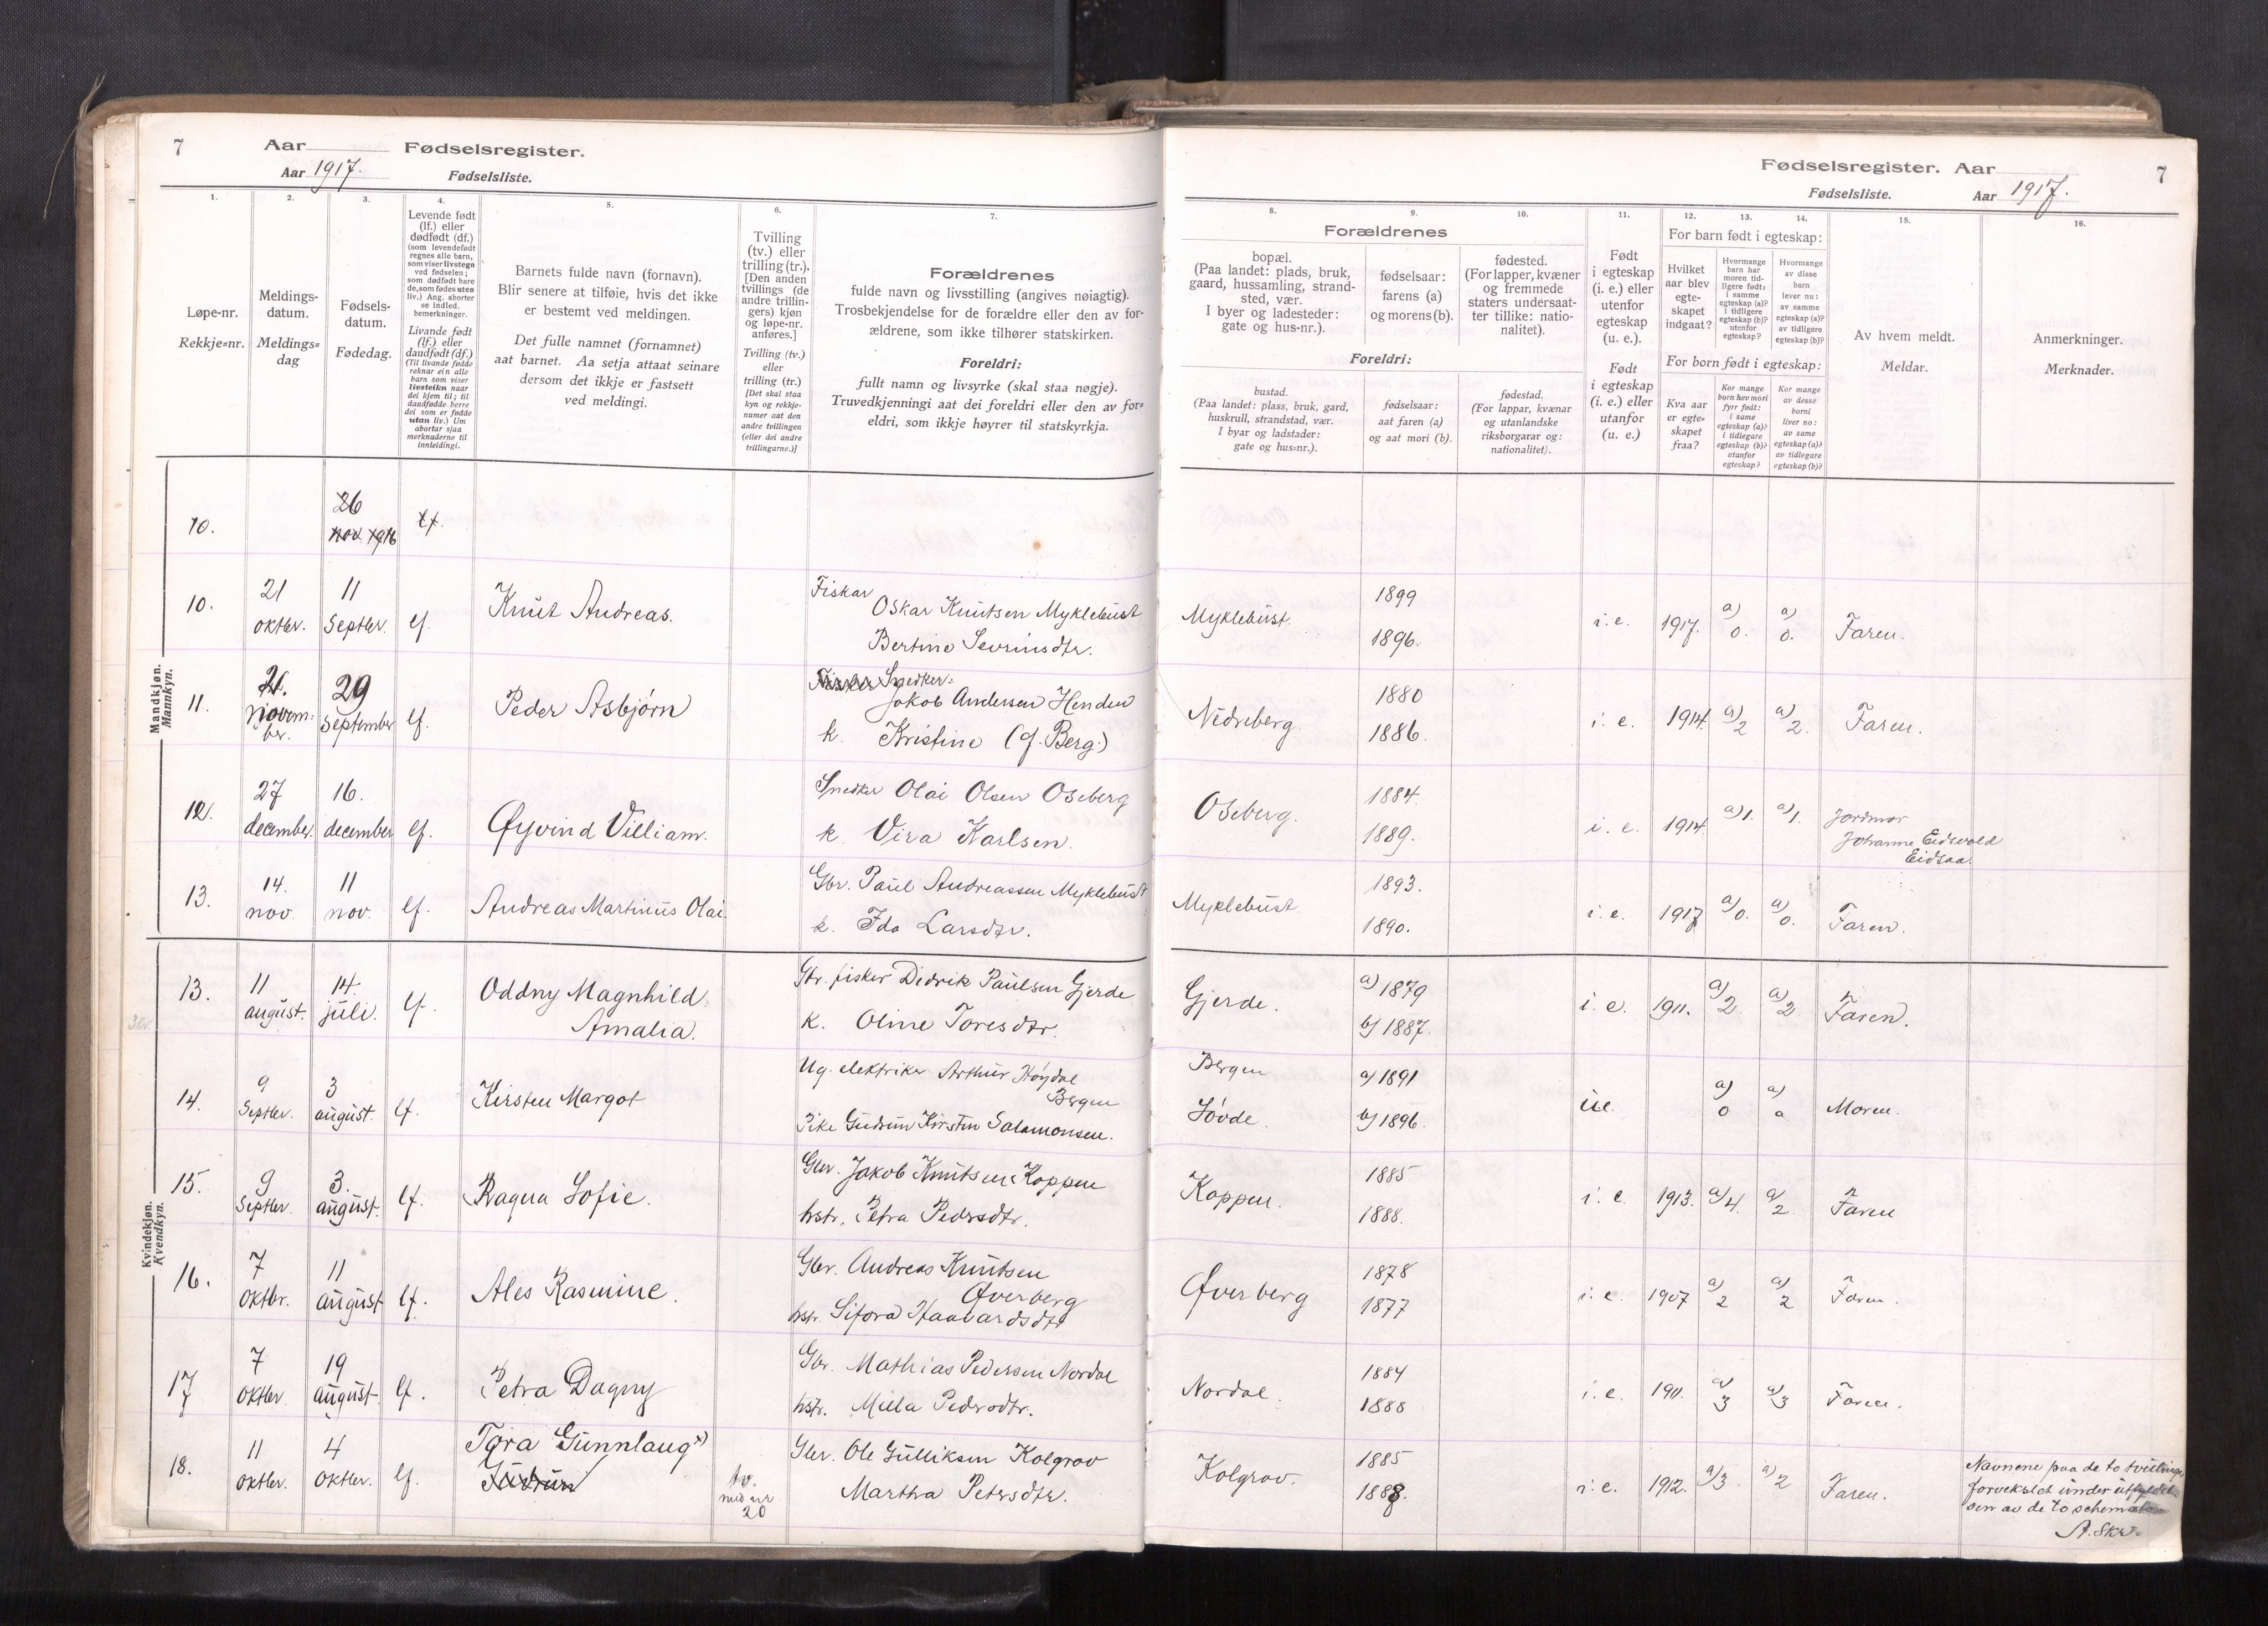 7
Aar
Fødselsregister.
Aar 1917.
Fødselsliste.
1.
2.
3.
4.
5.
6.
7.
Løpe-nr.
Rekkje=nr.
Meldings-
datum.
Meldings=
dag
Fødsels-
datum.
Fødedag.
Levende født
(lf.) eller
dødfødt (df.)
(som levendefødt
regnes alle barn,
som viser livstegn
ved fødselen;
som dødfødt bare
de, som fødes uten
liv.) Ang. aborter
se indled.
bemerkninger.
Livande født
(lf.) eller
daudfødt (df.)
(Til livande fødde
reknar ein alle
barn som viser
livsteikn naar
dei kjem til; til
daudfødde berre
dei som er fødde
utan liv.) Um
abortar sjaa
merknaderne til
innleidingi.
Barnets fulde navn (fornavn).
Blir senere at tilføie, hvis det ikke
er bestemt ved meldingen.
Det fulle namnet (fornamnet)
aat barnet. Aa setja attaat seinare
dersom det ikkje er fastsett
ved meldingi.
Tvilling
(tv.) eller
trilling (tr.).
[Den anden
tvillings (de
andre trillin-
gers) kjøn
og løpe-nr.
anføres.]
Tvilling (tv.)
eller
trilling (tr.)
[Det skal staa
kyn og rekkje-
numer aat den
andre tvillingen
(eller dei andre
trillingarne.)]
Forældrenes
fulde navn og livsstilling (angives nøiagtig).
Trosbekjendelse for de forældre eller den av for-
ældrene, som ikke tilhører statskirken.
Foreldri:
fullt namn og livsyrke (skal staa nøgje).
Truvedkjenningi aat dei foreldri eller den av for=
eldri, som ikkje høyrer til statskyrkja.
Mandkjøn.
Mannkyn.
10.
26
nov 1916
lf.
10.
21
oktbr.
11
Septbr.
lf.
Knut Andreas.
Fiskar
Oskar Knutsen Myklebust
Bertine Sevrinsdtr.
11.
21.
novem=
br.
29
September
lf.
Peder Asbjørn
Fisker Snedker
Jakob Andersen Henden
k. Kristine (f. Berg.)
12.
27
december.
16.
december
lf.
Øyvind Villiam.
Snedker Olai Olsen Oseberg
k. Vira Karlsen.
13.
14.
nov.
11
nov.
lf.
Andreas Martinus Olai.
Gbr. Paul Andreassen Myklebust
k. Ida Larsdtr.
Kvindekjøn.
Kvendkyn.
13.
11
august.
14.
juli.
lf.
Oddny Magnhild
Amalia.
Gbr. fisker Didrik Paulsen Gjerde
k. Oline Toresdtr.
14.
9
Septbr.
3
august.
lf.
Kirsten Margot
Ug. elektriker Arthur Høydal
Bergen
Pike Gudrun Kirstin Salamonsen.
15.
9
Septbr.
3.
august.
lf.
Ragna Sofie.
Gbr. Jakob Knutsen Koppen
hstr. Petra Pedersdtr.
16.
7
oktbr.
11
august
lf.
Ales Rasmine.
Gbr. Andreas Knutsen
Øverberg
hstr. Sifora Haavardsdtr
17
7
oktbr
19
august.
lf.
Petra Dagny
Gbr. Mathias Pedersen Nordal
hstr. Milla Pedersdtr.
18.
11
oktbr.
4
oktbr.
lf.
Tora Gunnlaug x)
Gudrun
tv.
med nr
20
Gbr. Ole Gulliksen Kolgrov
Martha Petersdtr.
Fødselsregister. Aar
7
Fødselsliste.
Aar 1917.
8.
9.
10.
11.
12.
13.
14.
15.
16.
Forældrenes
bopæl.
(Paa landet: plads, bruk,
gaard, hussamling, strand-
sted, vær.
I byer og ladesteder:
gate og hus-nr.).
fødselsaar:
farens (a)
og morens (b).
fødested.
(For lapper, kvæner
og fremmede
staters undersaat-
ter tillike: natio-
nalitet).
Foreldri:
bustad.
(Paa landet: plass, bruk, gard,
huskrull, strandstad, vær.
I byar og ladstader:
gate og hus=nr.).
fødselsaar:
aat faren (a)
og aat mori (b).
fødestad.
(For lappar, kvænar
og utanlandske
riksborgarar og:
nationalitet).
Født
i egteskap
(i. e.) eller
utenfor
egteskap
(u. e.).
Født
i egteskap
(i. e.) eller
utanfor
(u. e.)
For barn født i egteskap:
Hvilket
aar blev
egte-
skapet
indgaat?
Hvormange
barn har
moren tid-
ligere født:
i samme
egteskap (a)?
i tidligere
egteskap (b)?
utenfor
egteskap?
Hvormange
av disse
barn
lever nu:
av samme
egteskap (a)?
av tidligere
egteskap (b)?
For born født i egteskap:
Kva aar
er egte=
skapet
fraa?
Kor mange
born hev mori
fyrr født:
i same
egteskap (a)?
i tidlegare
egteskap (b)?
utanfor
egteskap?
Kor mange
av desse
borni
liver no:
av same
egteskap (a)?
av tidlegare
egteskap (b)?
Av hvem meldt.
Meldar.
Anmerkninger.
Merknader.
Myklebust.
1899
1896.
i. e.
1917.
a)
0.
a)
0.
Faren.
Nedreberg
1880
1886.
i. e.
1914.
a)
2
a)
2.
Faren.
Oseberg.
1884
1889.
i. e.
1914.
a) 1.
a) 1.
Jordmor
Johanne Eidsvold
Eidsaa.
Myklebust
1893.
1890.
i. e.
1917
a) 0.
a)
0.
Faren.
Gjerde.
a) 1879
b) 1887.
i. e.
1911.
a)
2
a)
2
Faren.
Bergen
Søvde.
a) 1891
b) 1896.
u.e.
a)
0
a)
Moren.
Koppen.
1885
1888.
i. e.
1913.
a) 4.
a)
2
Faren
Øverberg
1878
1877
i. e.
1907
a)
2
a)
2
Faren.
Nordal.
1884
1888
i. e.
1911.
a)
3
a)
3
Faren.
Kolgrov.
1885
1888.
i. e.
1912.
a) 3.
a) 2
Faren.
Navnene paa de to tvillinger
forvekslet under utfyldel
sen av de to schemata
A. Skr.